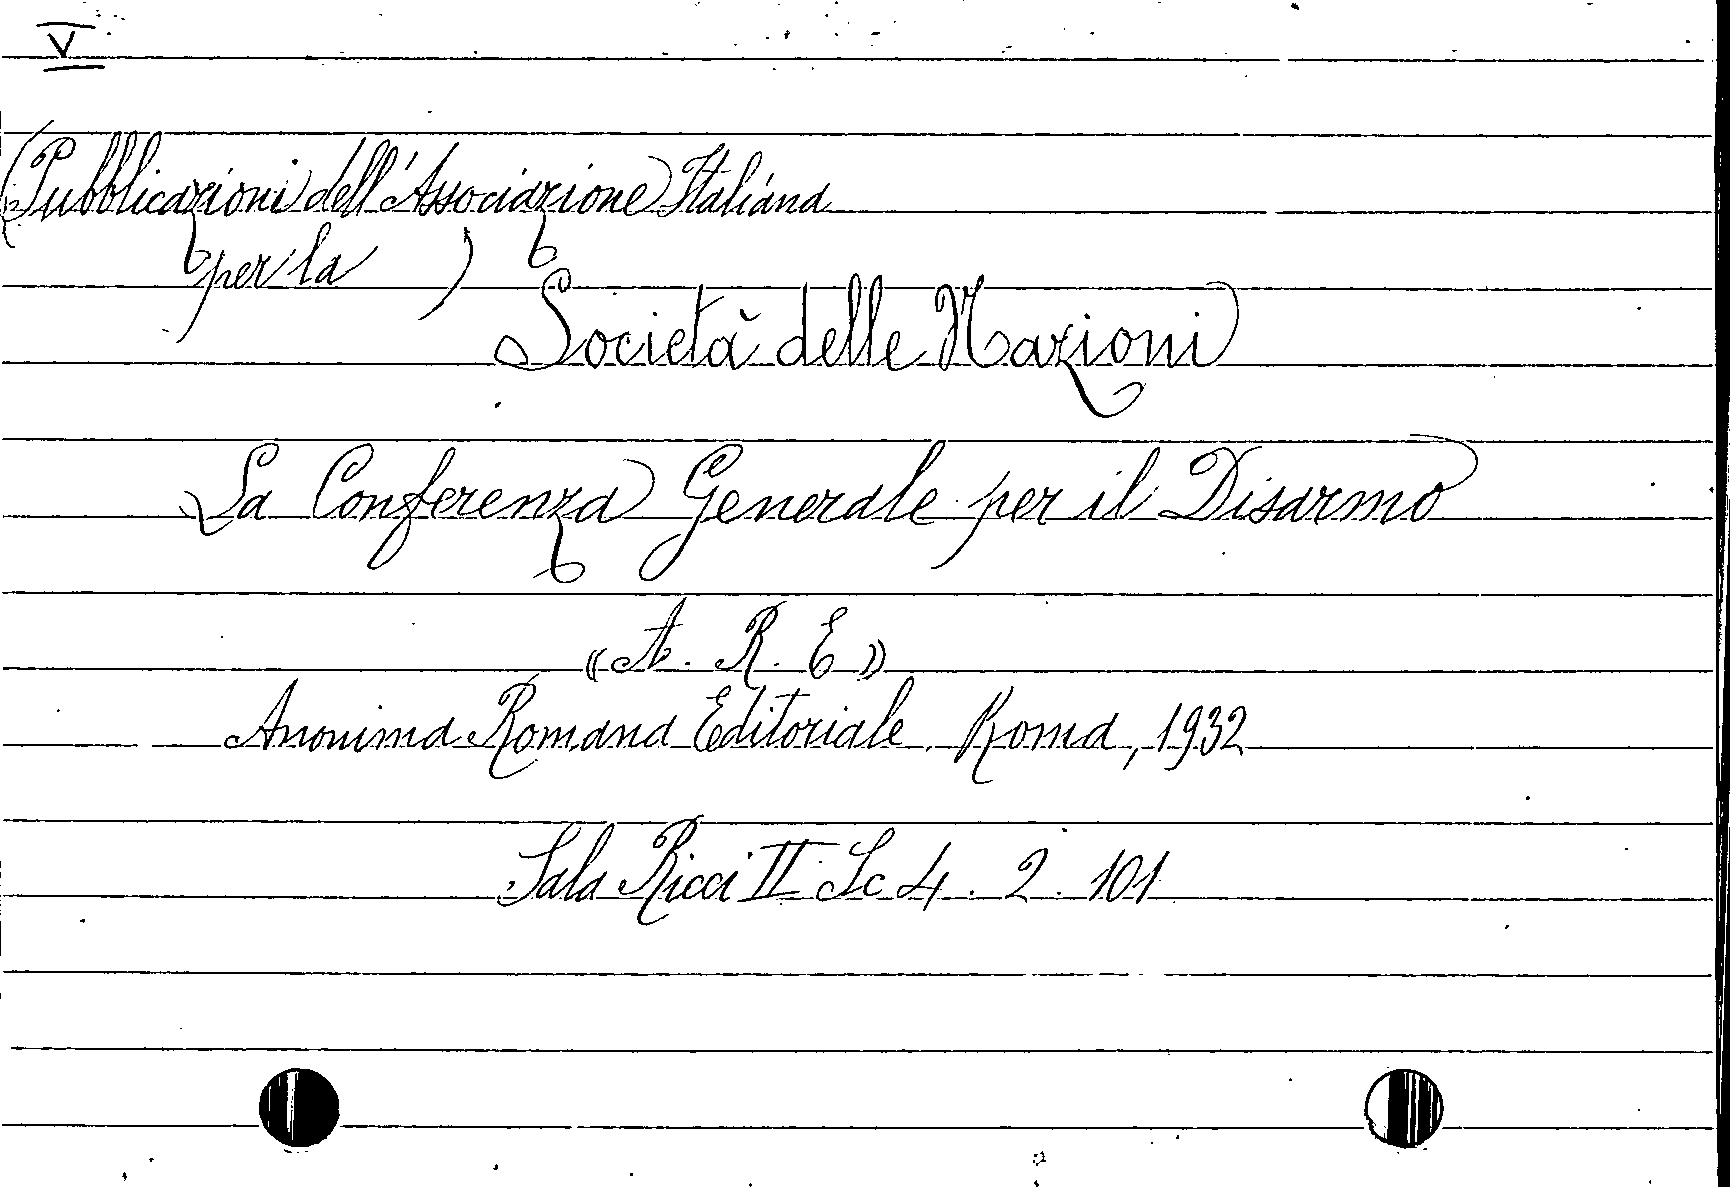 V
(Pubblicazioni dell'Associazione Italiana
per la )
Società delle Nazioni
La Conferenza Generale per il Disarmo
«A. R. E»
Anonima Romana Editoriale. Roma, 1932
Sala Ricci II Sc 4. 2. 101